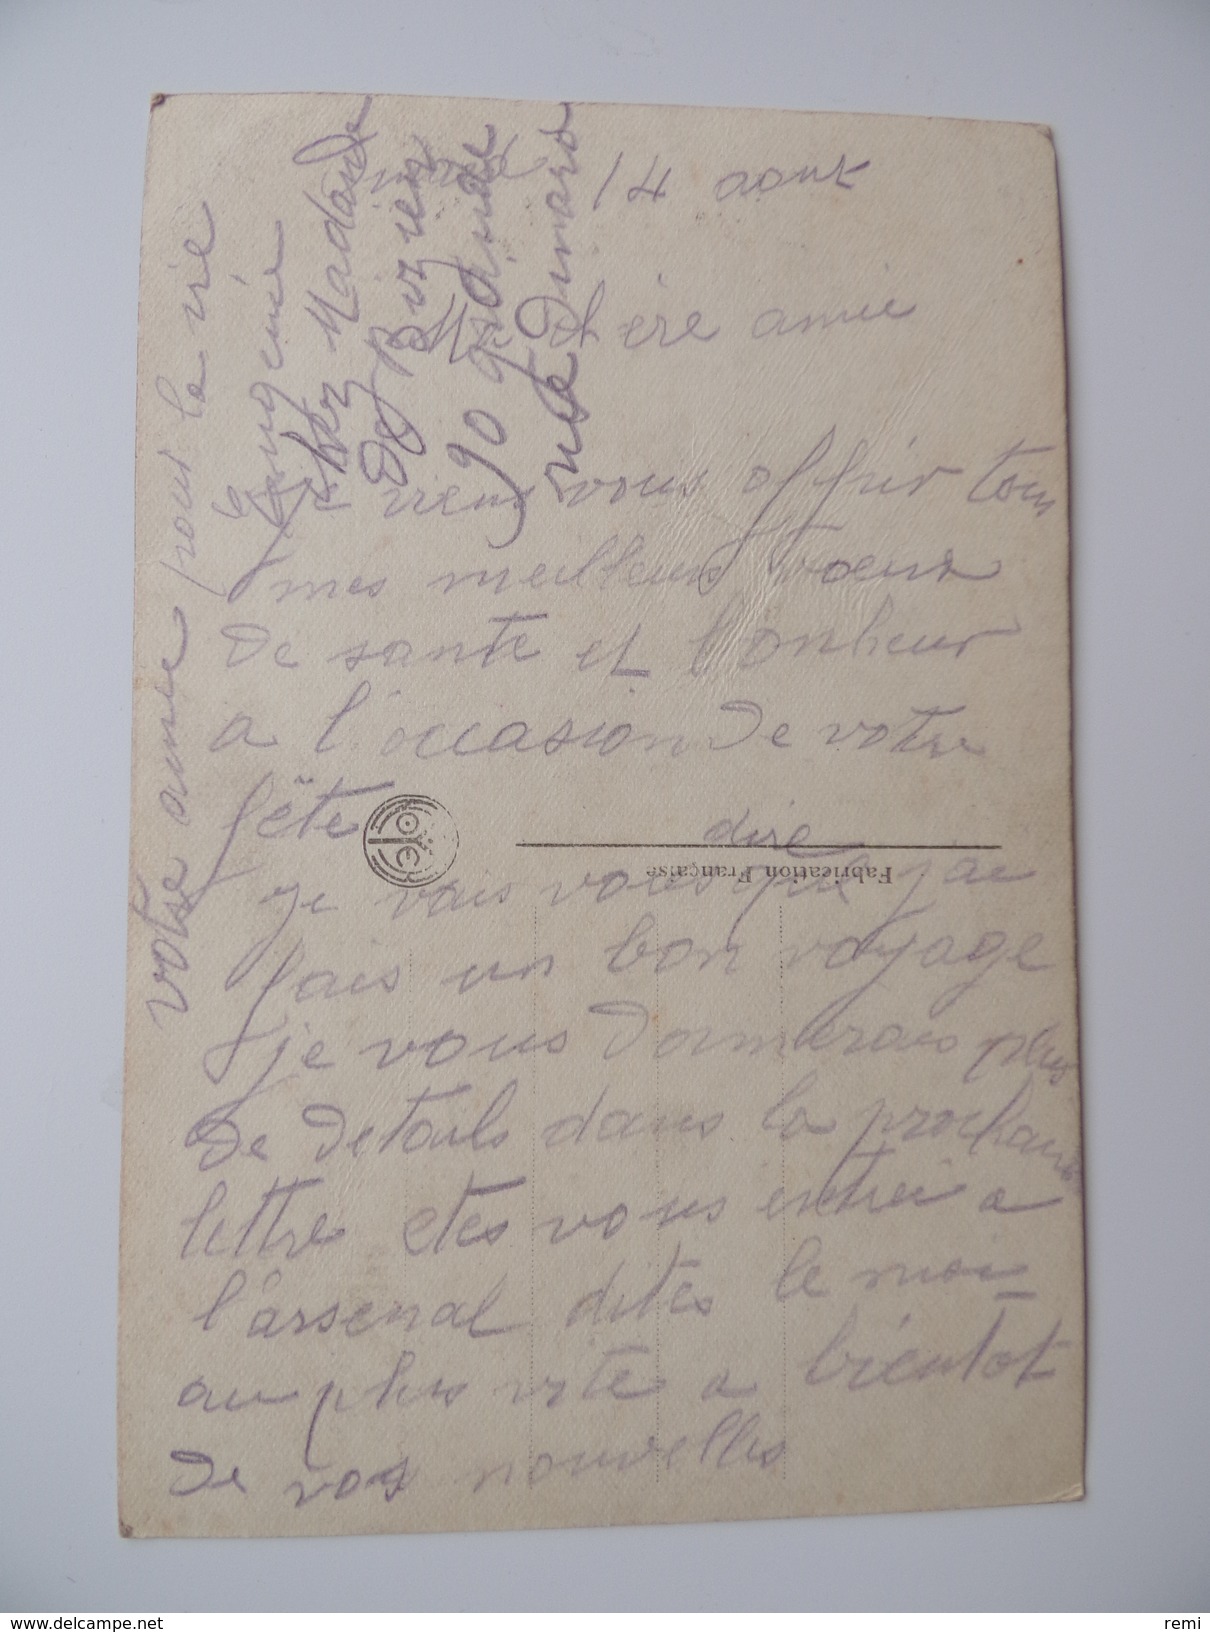 14 aout
Ma chère amie
je viens vous offrir tous
mes meilleurs voeux
de sante et bonheur
a l'occasion de votre
fête
dire
je vais vous que j'ai
fais un bon voyage
je vous donnerais plus
de details dans la prochaine
lettre etes vous entrée a
l'arsenal dites le moi
au plus vite a bientot
de vos nouvelles
votre amie pour la vie
Eugenie
chez Madame
90 grande
rue
Fabrication Française
NOYER
delcampe.net
remi